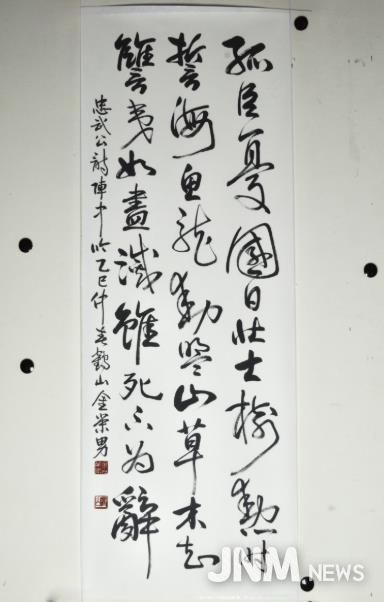 孤臣憂國日壯士樹勳時
誓海魚龍動盟山草木知
讐夷如盡滅雖死不為辭
忠武公詩陣中吟乙巳仲春鶴山金榮男
JNM NEWS